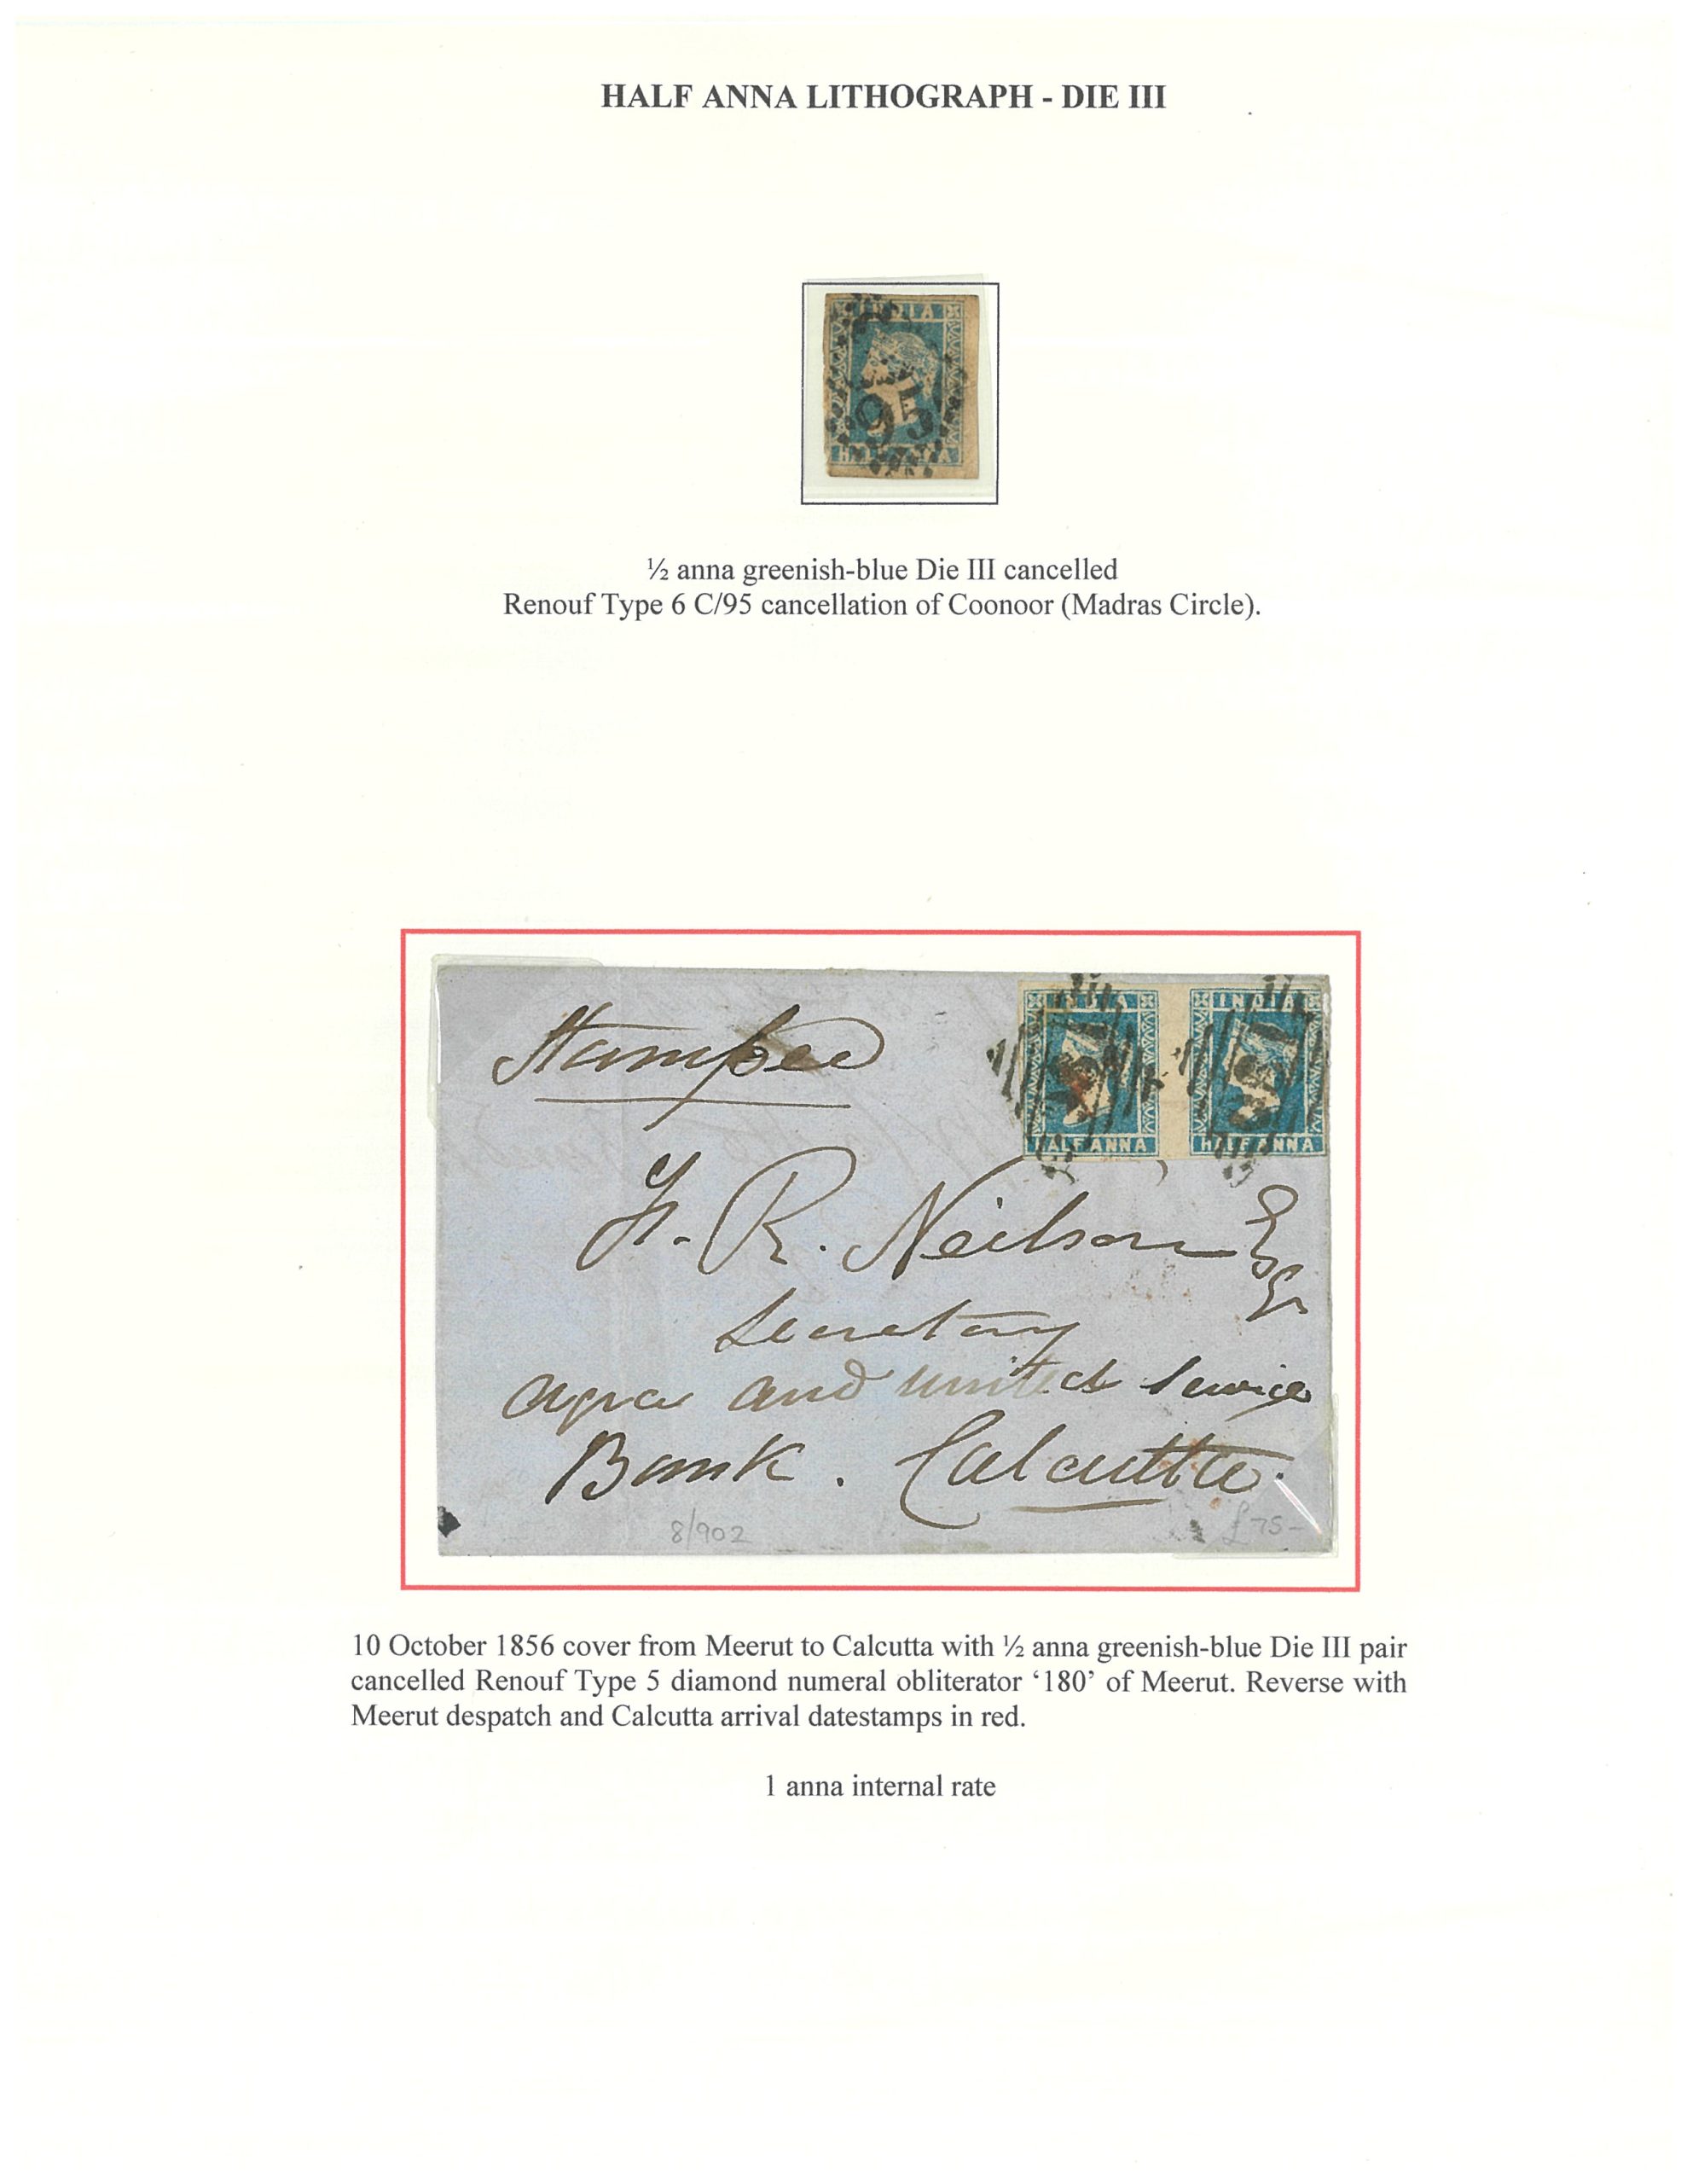 HALF ANNA LITHOGRAPH - DIE III
INDIA
95
½ anna greenish-blue Die III cancelled
Renouf Type 6 C/95 cancellation of Coonoor (Madras Circle).
Stamped
INDIA INDIA
HALF ANNA HALF ANNA
R. Neilson Esqr
Secretary
Agra and United Service
Bank. Calcutta.
8/902 £75-
10 October 1856 cover from Meerut to Calcutta with ½ anna greenish-blue Die III pair
cancelled Renouf Type 5 diamond numeral obliterator ‘180’ of Meerut. Reverse with
Meerut despatch and Calcutta arrival datestamps in red.
1 anna internal rate